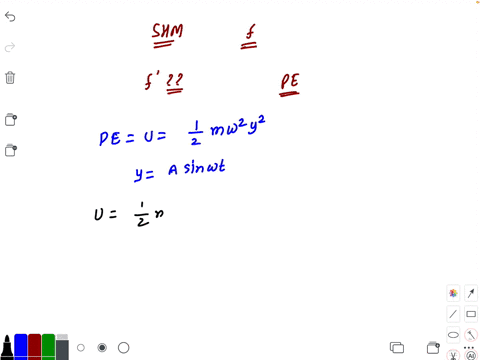 SHM f
f' ?? PE
PE = U = 1/2 mω²y²
y = A sinωt
U = 1/2